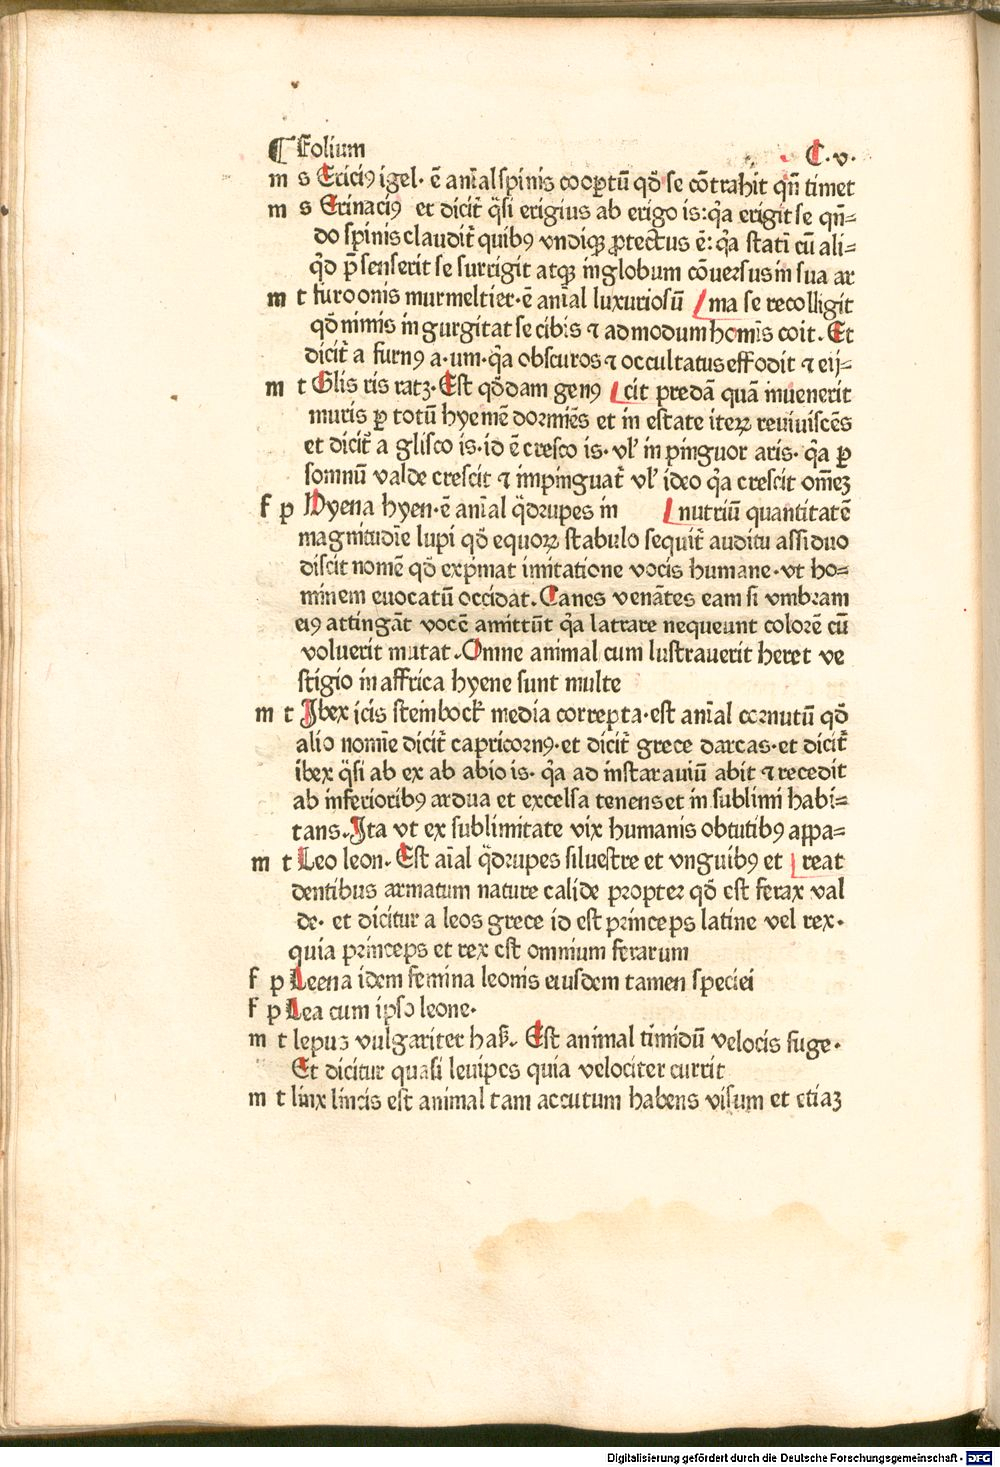 ¶ Folium C.v.
m s Ericiꝰ igel· ē anīal spinis coopꝑtū qđ se cōtrahit qn̄ timet
m s Erinaciꝰ et dicit̄ q̄si erigius ab erigo is: q̄a erigit se qn̄⸗
do spinis claudit̄ quibꝰ vndiqꝫ ꝓtectus ē: q̄a statī cū ali⸗
q̄d p̄senserit se surrigit atqꝫ in globum cōuersus in sua ar
m t furo onis murmeltier· ē anīal luxuriosū [ma se recolligit
qđ nimis in gurgitat se cibis ⁊ admodum homīs coit. Et
dicit̄ a furuꝰ a·um· q̄a obscuros ⁊ occultatus effodit ⁊ eij⸗
m t Glis ris ratz· Est qđdam genꝰ [cit predā quā inuenerit
muris ꝑ totū hyemē dormiēs et in estate iteꝝ reuiuiscēs
et dicit̄ a glisco is· id ē cresco is· vl' in pinguor aris· q̄a ꝑ
somnū valde crescit ⁊ impinguat̄ vl' ideo q̄a crescit omēꝫ
f p Hyena hyen· ē anīal q̄drupes in [nutriū quantitatē
magnitudīe lupi qđ equoꝝ stabulo sequit̄ auditu assiduo
discit nomē qđ exp̄mat imitatione vocis humane· vt ho⸗
minem euocatū occidat. Canes venātes eam si vmbram
eiꝰ attingāt vocē amittūt q̄a latrare nequeunt colorē cū
voluerit mutat. Omne animal cum lustrauerit heret ve
stigio in affrica hyene sunt multe
m t Ibex icis steinbock media correpta· est anīal cornutū qđ
alio nomīe dicit̄ capricornꝰ· et dicit̄ grece darcas· et dicit̄
ibex q̄si ab ex ab abio is· q̄a ad instar auiū abit ⁊ recedit
ab inferioribꝰ ardua et excelsa tenens et in sublimi habi⸗
tans. Ita vt ex sublimitate vix humanis obtutibꝰ appa⸗
m t Leo leon. Est aīal q̄drupes siluestre et vnguibꝰ et [reat
dentibus armatum nature calide propter qđ est ferax val
de· et dicitur a leos grece id est princeps latine vel rex·
quia princeps et rex est omnium ferarum
f p Leena idem femina leonis eiusdem tamen speciei
f p Lea cum ipso leone·
m t lepus vulgariter haß. Est animal timidū velocis fuge·
Et dicitur quasi leuipes quia velociter currit
m t linx lincis est animal tam accutum habens visum et etiaꝫ
Digitalisierung gefördert durch die Deutsche Forschungsgemeinschaft - DFG